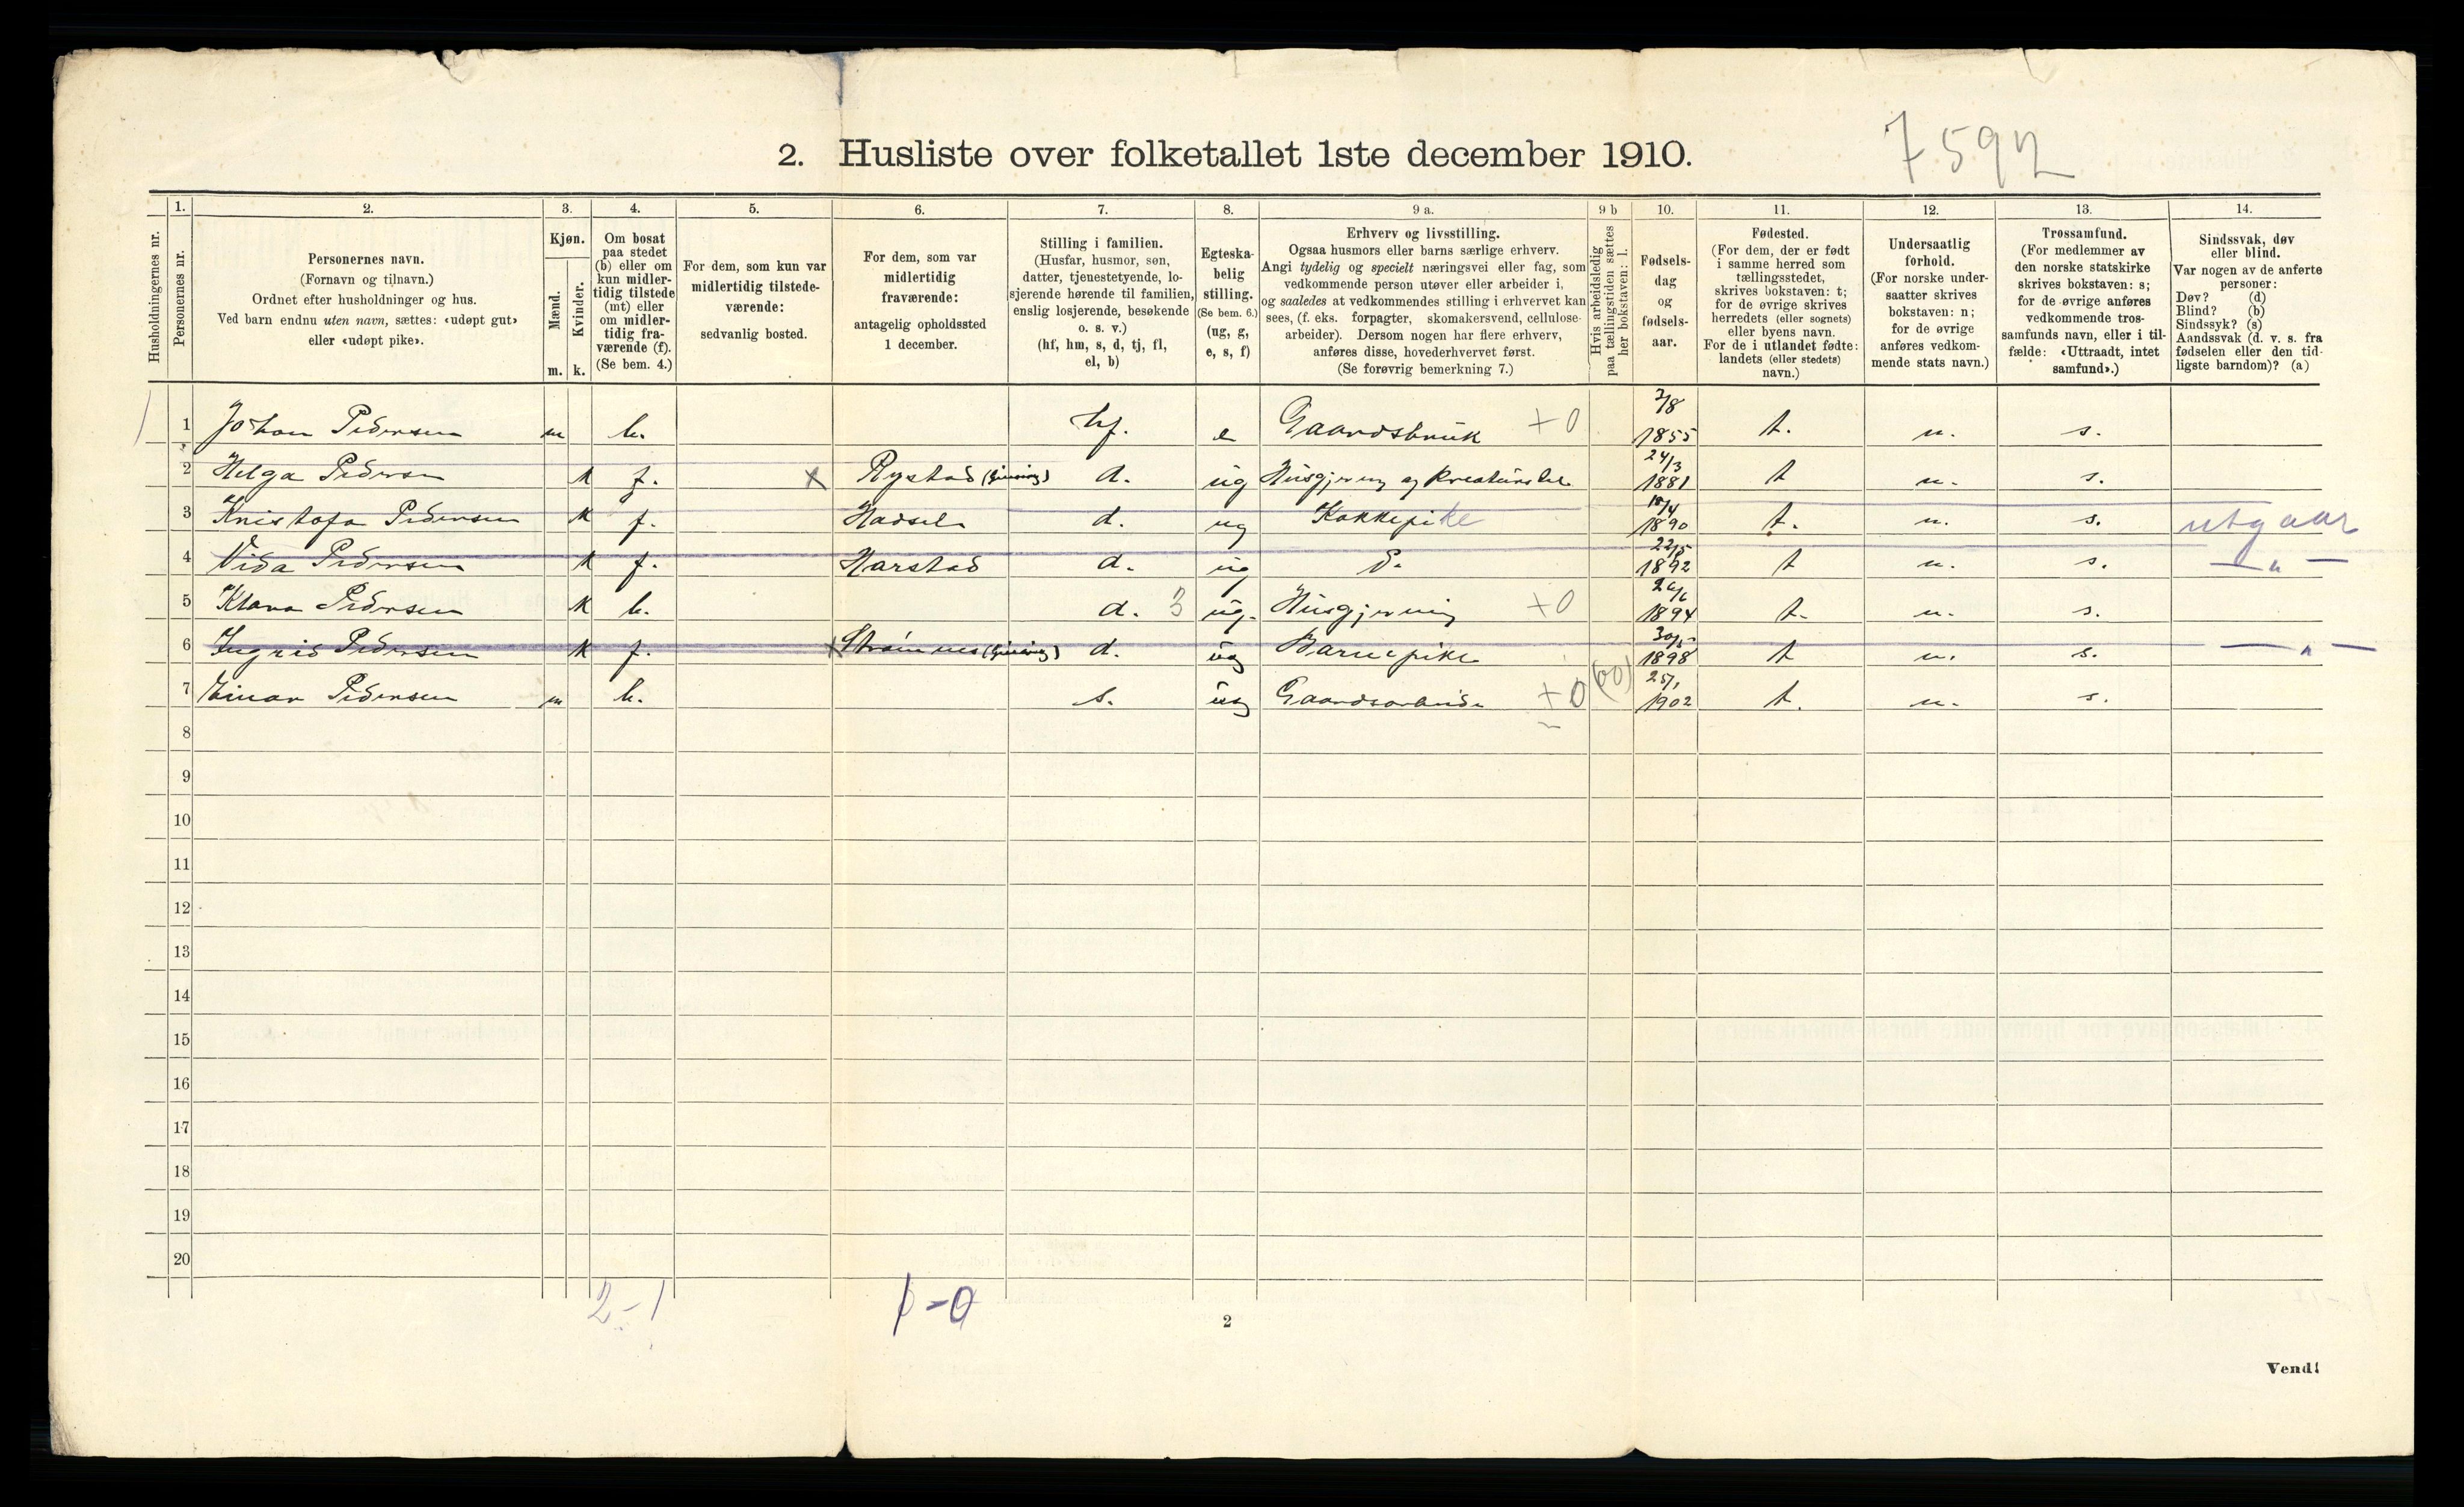 7592
2. Husliste over folketallet 1ste december 1910.
1. 2. 3. 4. 5. 6. 7. 8. 9 a. 9 b 10. 11. 12. 13. 14.
Husholdningernes nr.
Personernes nr.
Personernes navn.
(Fornavn og tilnavn.)
Ordnet efter husholdninger og hus.
Ved barn endnu uten navn, sættes: «udøpt gut»
eller «udøpt pike».
Kjøn.
Mænd.
Kvinder.
m. k.
Om bosat
paa stedet
(b) eller om
kun midler-
tidig tilstede
(mt) eller
om midler-
tidig fra-
værende (f).
(Se bem. 4.)
For dem, som kun var
midlertidig tilstede-
værende:
sedvanlig bosted.
For dem, som var
midlertidig
fraværende:
antagelig opholdssted
1 december.
Stilling i familien.
(Husfar, husmor, søn,
datter, tjenestetyende, lo-
sjerende hørende til familien,
enslig losjerende, besøkende
o. s. v.)
(hf, hm, s, d, tj, fl,
el, b)
Egteska-
belig
stilling.
(Se bem. 6.)
(ug, g,
e, s, f)
Erhverv og livsstilling.
Ogsaa husmors eller barns særlige erhverv.
Angi tydelig og specielt næringsvei eller fag, som
vedkommende person utøver eller arbeider i,
og saaledes at vedkommendes stilling i erhvervet kan
sees, (f. eks. forpagter, skomakersvend, cellulose-
arbeider). Dersom nogen har flere erhverv,
anføres disse, hovederhvervet først.
(Se forøvrig bemerkning 7.)
Hvis arbeidsledig
paa tællingstiden sættes
her bokstaven: l.
Fødsels-
dag
og
fødsels-
aar.
Fødested.
(For dem, der er født
i samme herred som
tællingsstedet,
skrives bokstaven: t;
for de øvrige skrives
herredets (eller sognets)
eller byens navn.
For de i utlandet fødte:
landets (eller stedets)
navn.)
Undersaatlig
forhold.
(For norske under-
saatter skrives
bokstaven: n;
for de øvrige
anføres vedkom-
mende stats navn.)
Trossamfund.
(For medlemmer av
den norske statskirke
skrives bokstaven: s;
for de øvrige anføres
vedkommende tros-
samfunds navn, eller i til-
fælde: «Uttraadt, intet
samfund».)
Sindssvak, døv
eller blind.
Var nogen av de anførte
personer:
Døv? (d)
Blind? (b)
Sindssyk? (s)
Aandssvak (d. v. s. fra
fødselen eller den tid-
ligste barndom)? (a)
1 Johan Pedersen m b. hf. e Gaardsbruk +0 7/8 1855 t. n. s.
2 Helga Pedersen k f. x Rystad (Gimsøy) d. ug Husgjerning og kreaturstel 24/3 1881 t n. s.
3 Kristofa Pedersen k f. Hadsel d. ug Kokkepike 10/4 1890 t. n. s. utgaar
4 Vida Pedersen k f. Harstad d. ug D. 22/5 1892 t n. s. — " —
5 Klara Pedersen k b. d. 3 ug. Husgjerning +0 1894 t. n. s.
6 Ingrid Pedersen k f. x Strømnes (Gimsøy) d. ug Barnepike 30/5 1898 t n. s. — " —
7 Einar Pedersen m b. s. ug Gaardsarbeide +0 (00) 25/1 1902 t. n. s.
8
9
10
11
12
13
14
15
16
17
18
19
20
2-1
2
Vend!